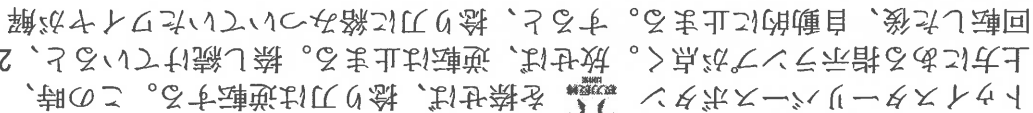 トゥイスターリバースボタン を捺せば、捻り刀は逆転する。この時、
上方にある指示ランプが点く。放せば、逆転は止まる。捺し続けていると、2
回転した後、自動的に止まる。すると、捻り刀に絡みついていたワイヤが解